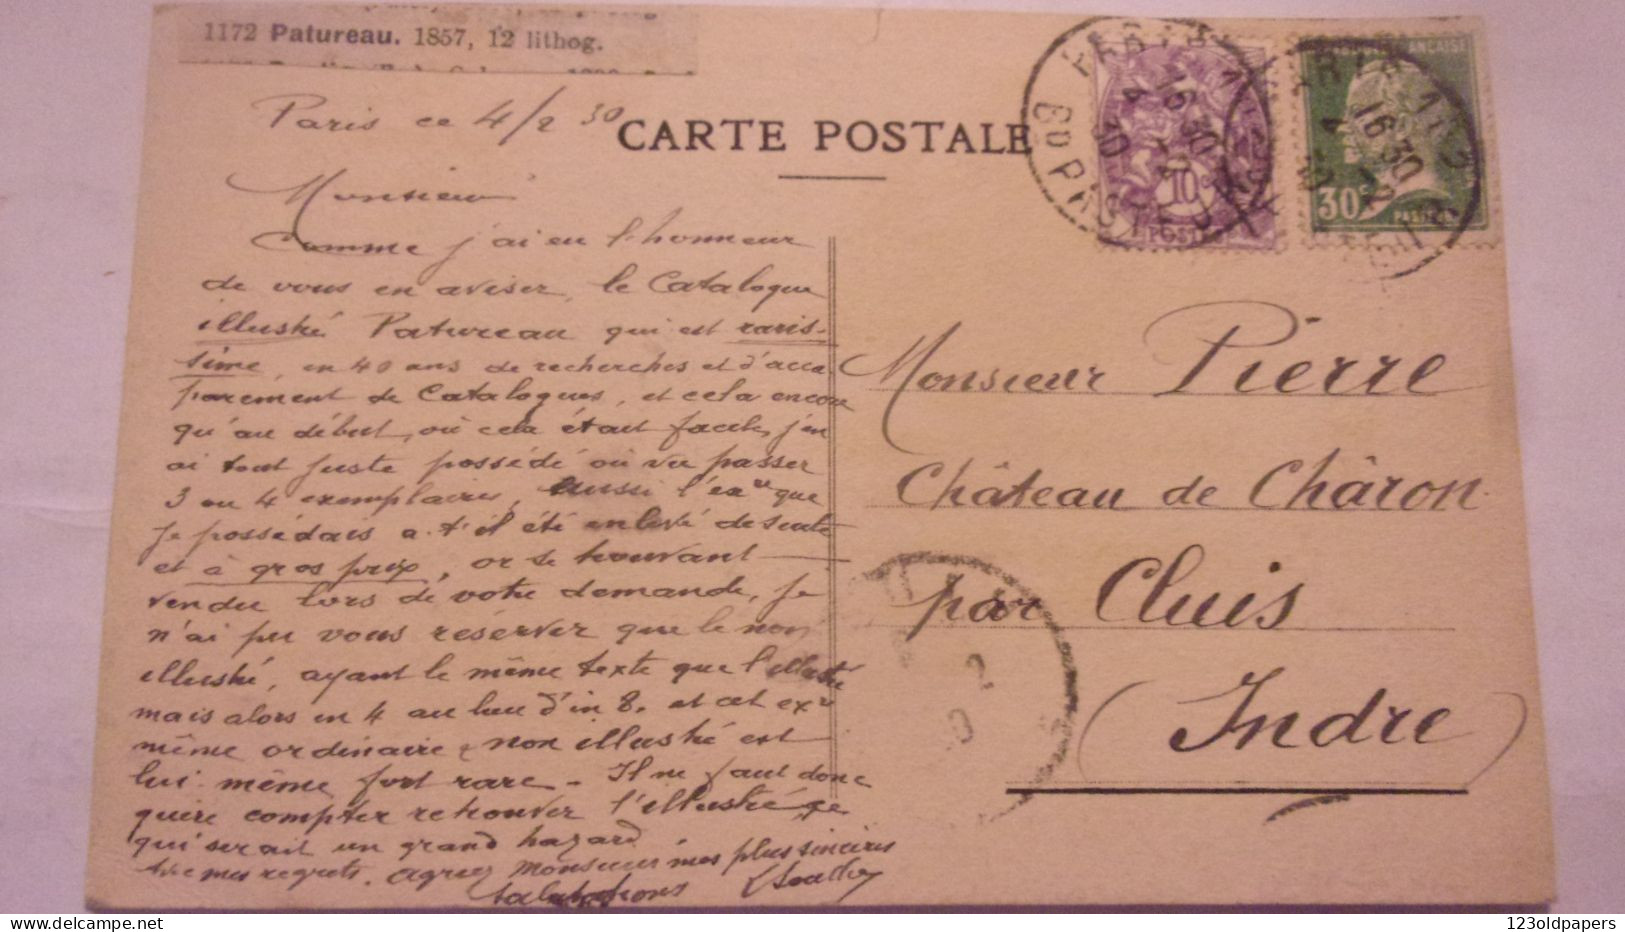 1172 Patureau. 1857, 12 lithog.
Paris ce 4/2 30
CARTE POSTALE
Monsieur
Comme j'ai eu l'honneur
de vous en aviser, le Catalogue
illustré Patureau qui est raris-
sime, en 40 ans de recherches et d'acca
parement de Catalogues, et cela encore
qu'au début, où cela était facile, j'en
ai tout juste possédé ou vu passer
3 ou 4 exemplaires, aussi l'exre que
je possédais a-t'il été enlevé de suite
et à gros prix, or se trouvant
vendu lors de votre demande, je
n'ai pu vous réserver que le non
illustré, ayant le même texte que l'illustré
mais alors in 4 au lieu d'in 8. et cet exre
même ordinaire & non illustré est
lui même fort rare - Il ne faut donc
guère compter retrouver l'illustré, ce
qui serait un grand hazard
mes regrets. agréez Monsieur mes plus sincères
salutations
10c
POSTES
30c
PASTEUR
PARIS 113
16 30
4 2
30
Rue PASTEUR
Monsieur Pierre
Château de Châron
par Cluis
(Indre)
2
123oldpapers